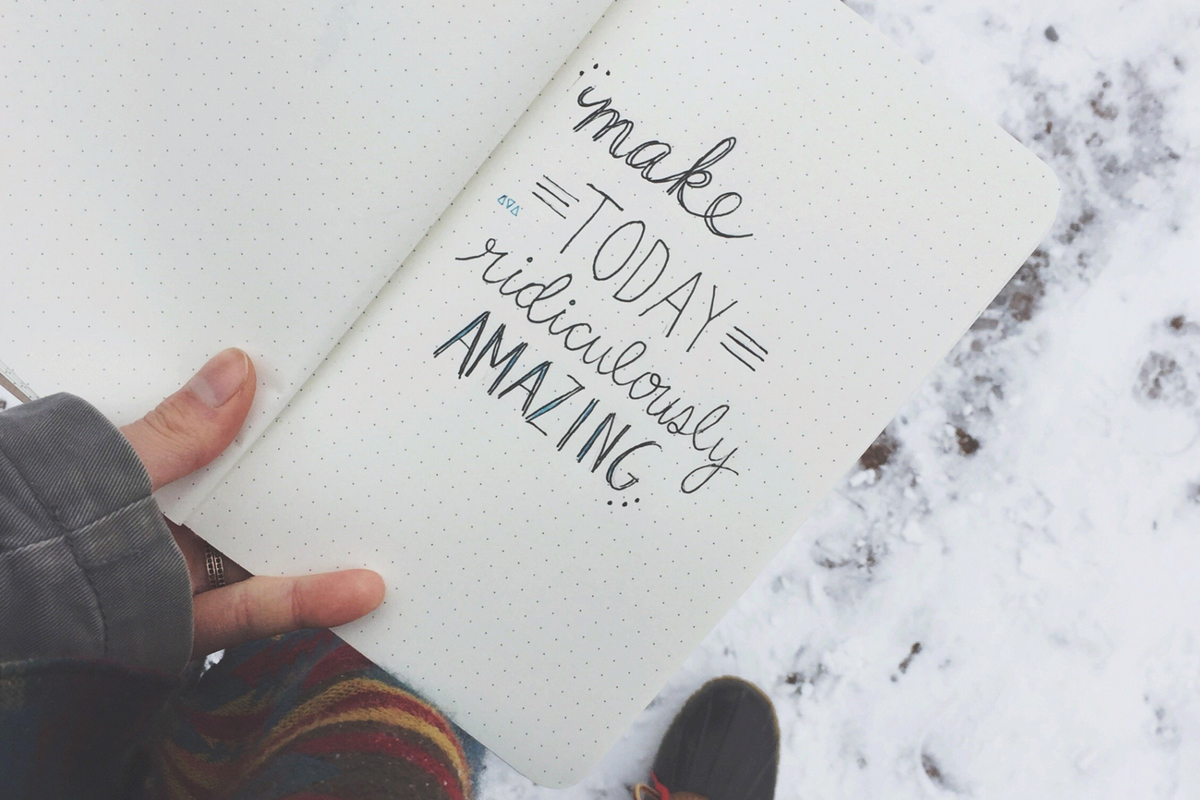 make
TODAY
ridiculously
AMAZING